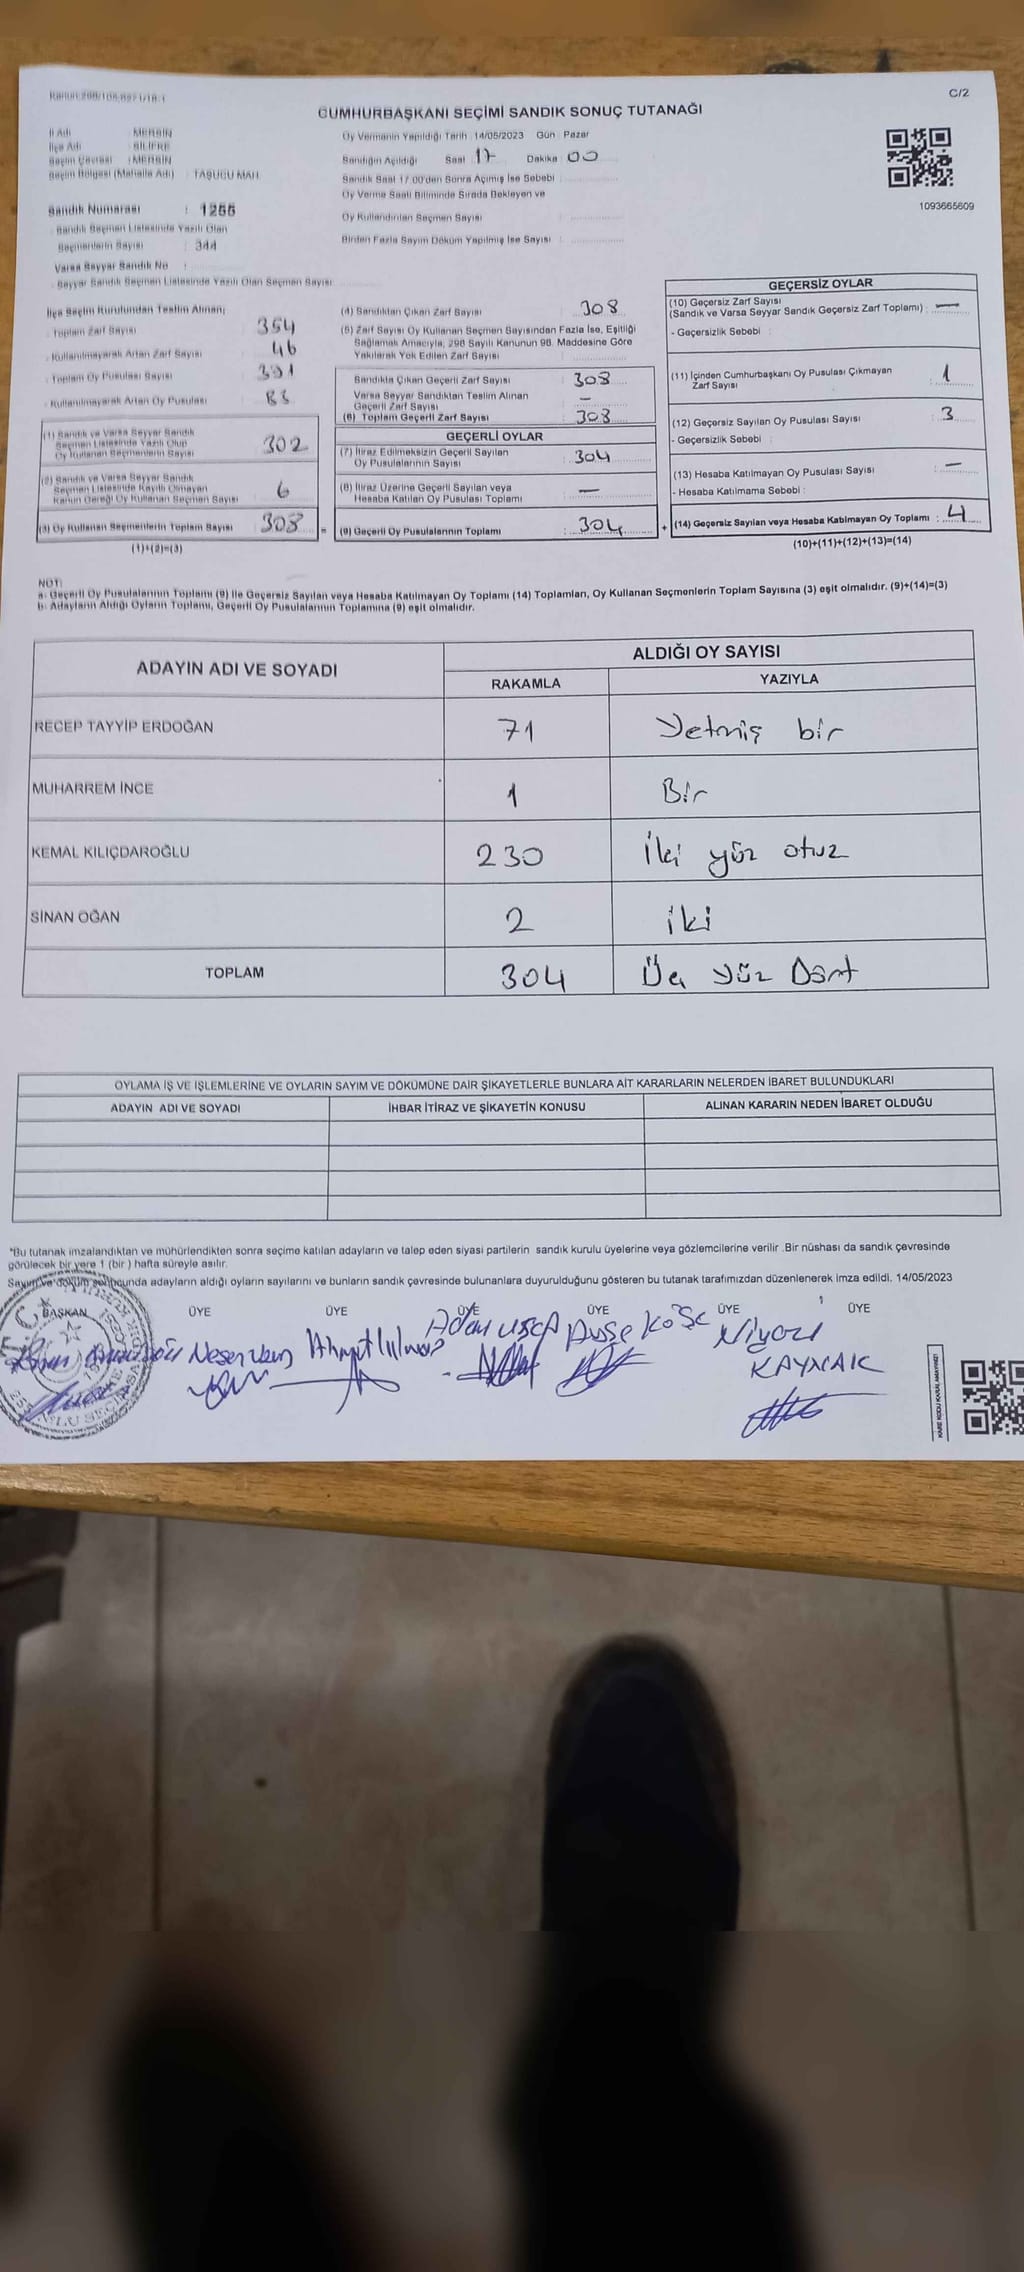 Kanun:298/105,6271/18-1
C/2
CUMHURBAŞKANI SEÇİMİ SANDIK SONUÇ TUTANAĞI
İl Adı : MERSİN
İlçe Adı : SİLİFKE
Seçim Çevresi : MERSİN
Seçim Bölgesi (Mahalle Adı) : TAŞUCU MAH.
Oy Vermenin Yapıldığı Tarih 14/05/2023 Gün Pazar
Sandığın Açıldığı Saat 17 Dakika 00
Sandık Saat 17.00'den Sonra Açılmış İse Sebebi :
Oy Verme Saati Bitiminde Sırada Bekleyen ve
Oy Kullandırılan Seçmen Sayısı :
Birden Fazla Sayım Döküm Yapılmış İse Sayısı :
1093665609
Sandık Numarası : 1255
- Sandık Seçmen Listesinde Yazılı Olan
Seçmenlerin Sayısı : 344
Varsa Seyyar Sandık No :
- Seyyar Sandık Seçmen Listesinde Yazılı Olan Seçmen Sayısı
İlçe Seçim Kurulundan Teslim Alınan;
- Toplam Zarf Sayısı : 354
- Kullanılmayarak Artan Zarf Sayısı : 46
- Toplam Oy Pusulası Sayısı : 391
- Kullanılmayarak Artan Oy Pusulası : 83
(1) Sandık ve Varsa Seyyar Sandık
Seçmen Listesinde Yazılı Olup
Oy Kullanan Seçmenlerin Sayısı 302
(2) Sandık ve Varsa Seyyar Sandık
Seçmen Listesinde Kayıtlı Olmayan
Kanun Gereği Oy Kullanan Seçmen Sayısı 6
(3) Oy Kullanan Seçmenlerin Toplam Sayısı 308 =
(1)+(2)=(3)
(4) Sandıktan Çıkan Zarf Sayısı : 308
(5) Zarf Sayısı Oy Kullanan Seçmen Sayısından Fazla İse, Eşitliği
Sağlamak Amacıyla, 298 Sayılı Kanunun 98. Maddesine Göre
Yakılarak Yok Edilen Zarf Sayısı :
Sandıkta Çıkan Geçerli Zarf Sayısı : 308
Varsa Seyyar Sandıktan Teslim Alınan
Geçerli Zarf Sayısı : -
(6) Toplam Geçerli Zarf Sayısı : 308
GEÇERLİ OYLAR
(7) İtiraz Edilmeksizin Geçerli Sayılan
Oy Pusulalarının Sayısı : 304
(8) İtiraz Üzerine Geçerli Sayılan veya
Hesaba Katılan Oy Pusulası Toplamı : -
(9) Geçerli Oy Pusulalarının Toplamı : 304 +
GEÇERSİZ OYLAR
(10) Geçersiz Zarf Sayısı
(Sandık ve Varsa Seyyar Sandık Geçersiz Zarf Toplamı) : -
- Geçersizlik Sebebi :
(11) İçinden Cumhurbaşkanı Oy Pusulası Çıkmayan
Zarf Sayısı : 1
(12) Geçersiz Sayılan Oy Pusulası Sayısı : 3
- Geçersizlik Sebebi :
(13) Hesaba Katılmayan Oy Pusulası Sayısı : -
- Hesaba Katılmama Sebebi :
(14) Geçersiz Sayılan veya Hesaba Katılmayan Oy Toplamı : 4
(10)+(11)+(12)+(13)=(14)
NOT:
a- Geçerli Oy Pusulalarının Toplamı (9) ile Geçersiz Sayılan veya Hesaba Katılmayan Oy Toplamı (14) Toplamları, Oy Kullanan Seçmenlerin Toplam Sayısına (3) eşit olmalıdır. (9)+(14)=(3)
b- Adayların Aldığı Oyların Toplamı, Geçerli Oy Pusulalarının Toplamına (9) eşit olmalıdır.
ADAYIN ADI VE SOYADI
ALDIĞI OY SAYISI
RAKAMLA YAZIYLA
RECEP TAYYİP ERDOĞAN 71 Yetmiş bir
MUHARREM İNCE 1 Bir
KEMAL KILIÇDAROĞLU 230 İki yüz otuz
SİNAN OĞAN 2 iki
TOPLAM 304 Üç yüz Dört
OYLAMA İŞ VE İŞLEMLERİNE VE OYLARIN SAYIM VE DÖKÜMÜNE DAİR ŞİKAYETLERLE BUNLARA AİT KARARLARIN NELERDEN İBARET BULUNDUKLARI
ADAYIN ADI VE SOYADI İHBAR İTİRAZ VE ŞİKAYETİN KONUSU ALINAN KARARIN NEDEN İBARET OLDUĞU
*Bu tutanak imzalandıktan ve mühürlendikten sonra seçime katılan adayların ve talep eden siyasi partilerin sandık kurulu üyelerine veya gözlemcilerine verilir .Bir nüshası da sandık çevresinde
görülecek bir yere 1 (bir ) hafta süreyle asılır.
Sayım ve döküm sonucunda adayların aldığı oyların sayılarını ve bunların sandık çevresinde bulunanlara duyurulduğunu gösteren bu tutanak tarafımızdan düzenlenerek imza edildi. 14/05/2023
BAŞKAN ÜYE ÜYE ÜYE ÜYE ÜYE ÜYE
Adem Ayşe Köse Niyazi
KAYNAK